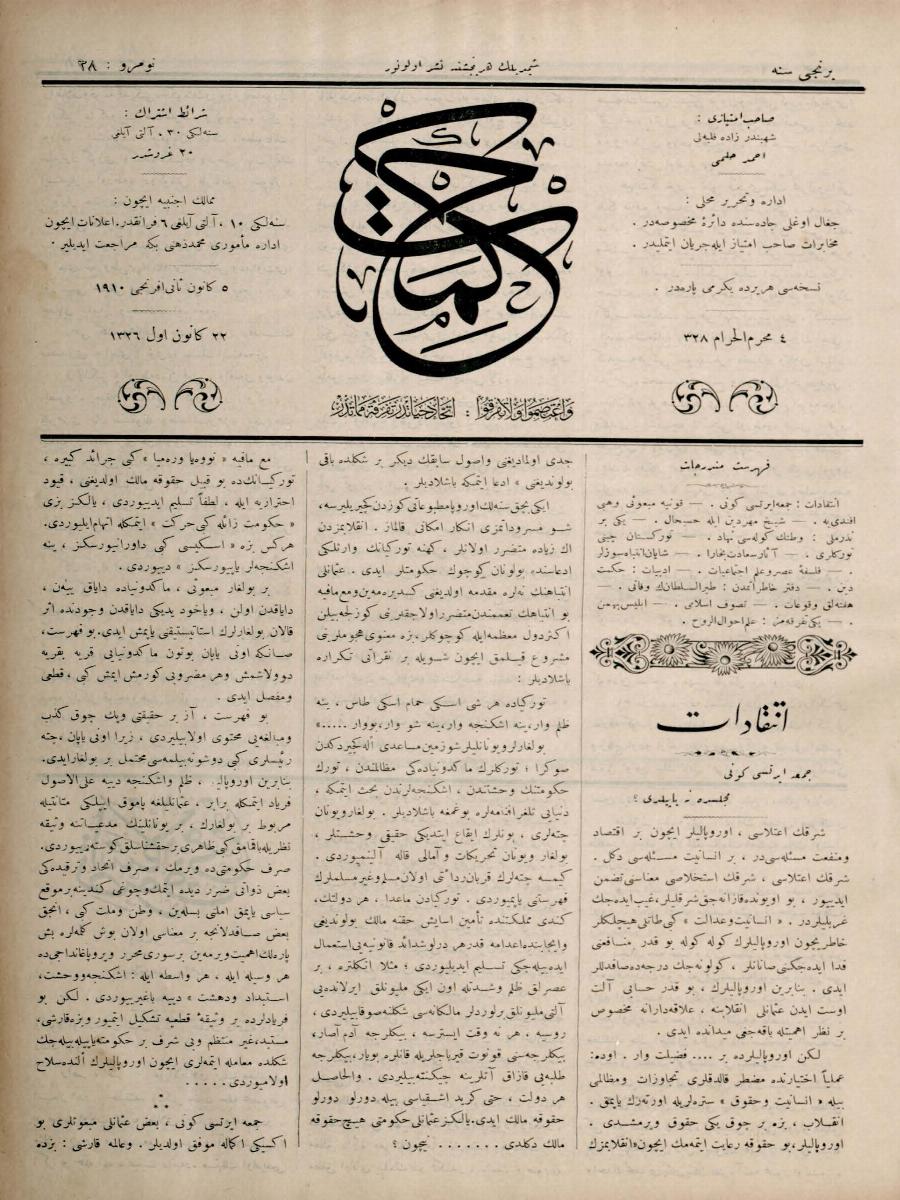 برنجی سنه
شمدیلك هر پنجشنبه نشر اولونور
نومرو : ٢٨
صاحب امتیازی :
شهبندر زاده فلبه‌لی
احمد حلمی
اداره و تحریر محلی :
جغال اوغلی جاده‌سنده دائرهٔ مخصوصه‌در .
مخابرات صاحب امتیاز ایله جریان ایتملیدر .
نسخه‌سی هر یرده یکرمی پاره‌در .
٤ محرم الحرام ٣٢٨
حكمت
واعتصموا ولا تفرقوا : اتحاد حیاتدر تفرقه مماتدر
شرائط اشتراك :
سنه‌لكی ٣٠ ، آلتی آیلغی
٢٠ غروشدر
ممالك اجنبیه ایچون :
سنه‌لكی ١٠ ، آلتی آیلغی ٦ فرانقدر. اعلانات ایچون
اداره مأموری محمد ذهنی بكه مراجعت ایدیلیر .
٥ كانون ثانی افرنجی ١٩١٠
٢٢ كانون اول ١٣٢٦
فهرست مندرجات
انتقادات : جمعه ایرتسی كونی . — قونیه مبعوثی وهبی
افندی‌یه . — شیخ مهردین ایله حسبحال . — یكی بر
ندرملی : وطنك كوله‌سی نهاد . — توركستان چینی
توركلری . — آثار سعادت بخارا . — شایان انتباه سوزلر
. — فلسفهٔ عصر و علم اجتماعیات . — ادبیات : حكمت
دین . — دفتر خاطراتمدن : ظهیر السلطان وفاتی .
هفته‌لق وقوعات . — تصوف اسلامی . — ابلیس بهمن
. — یكی تفرقه‌مز : علم احوال الروح .
انتقادات
جمعه ایرتسی كونی
مجلسده نه یاپیلدی ؟
شرقك اعتلاسی ، اوروپالیلر ایچون بر اقتصاد
ومنفعت مسئله‌سی‌در ، بر انسانیت مسئله‌سی دكل .
شرقك اعتلاسی ، شرقك استخلاصی معناسنی تضمن
ایدییور ، بو اویونده قازانه‌جق شرقلیلر، غیب ایده‌جك
غربلیلردر . « انسانیت وعدالت » كبی طاتلی هیچلكلر
خاطریچون اوروپالیلرك كوله كوله بو قدر منافعنی
فدا ایده‌جكنی صانانلر ، كولونه‌جك درجه‌ده صافدللر
ایدی . بنابرین اوروپالیلرك ، بو قدر حسابی آلت
اوست ایدن عثمانلی انقلابنه ، علاقه‌دارانه مخصوص
بر نظر اهمیتله باقه‌جغی میدانده ایدی .
لكن اوروپالیلرده بر .... فضیلت وار . اوده :
عملیاً اختیارنده مضطر قالدقلری تجاوزات ومظالمی
بیله « انسانیت وحقوق » ستره‌لریله اورته‌رك یاپمق .
انقلاب ، بزه بر چوق یكی حقوق ویرمشدی .
اوروپالیلر، بو حقوقه رعایت ایتمه‌مك ایچون «انقلابمزك
جدی اولمادیغنی واصول سابقك دیكر بر شكلده باقی
بولوندیغنی » ادعا ایتمكه باشلادیلر .
ایكی بچق سنه‌لك اوروپا مطبوعاتی كوزدن كچیریلیرسه ،
شو مسروداتمزی انكار امكانی قالماز . انقلابمزدن
اك زیاده متضرر اولانلر ، كهنه توركیانك وارثلكی
ادعاسنده بولونان كوچوك حكومتلر ایدی . عثمانلی
انتباهنك نه‌لره مقدمه اولدیغنی كسدیره‌مه‌ین و مع مافیه
بو انتباهك تعممندن متضرر اولاجقلرینی كوزلجه بیلن
اكثر دول معظمه ایله كوچوكلر، بزه معنوی هجوملرینی
مشروع قیلمق ایچون شویله بر نقراتی تكراره
باشلادیلر :
توركیاده هر شی اسكی حمام اسكی طاس ، ینه
ظلم وار، ینه اشكنجه وار، ینه شو وار، بو وار .....»
بولغارلر ویونانلیلر شو زمین مساعدی اله كچیردكدن
صوكرا ؛ توركلرك ماكدونیاده‌كی مظالمندن ، تورك
حكومتنك وحشتندن ، اشكنجه‌لرندن بحث ایتمكه ،
دنیایی تلغرافنامه‌لره بوغمغه باشلادیلر . بولغار ویونان
چته‌لری ، بونلرك ایقاع ایتدیكی حقیقی وحشتلر ،
بولغار ویونان تحریكات و آمالی قاله آلینمیوردی .
كیمسه چته‌لرك قربان‌ردائتی اولان مسلم و غیر مسلملرك
فهرستنی یاپمیوردی . توركیادن ماعدا ، هر دولتك،
كندی مملكتنده تأمین آسایش حقنه مالك بولوندیغی
وایجابنده اعدامه قدر هر درلو شدائد قانونیه‌یی استعمال
ایده‌بیله‌جكی تسلیم ایدیلیوردی ؛ مثلا انكلتره ، بر
عصرلق ظلم وشدتله اون ایكی ملیونلق ایرلانده‌یی
آلتی ملیونلق بر لوردلر مالكانه‌سی شكلنه صوقابیلیردی ،
روسیه ، هر نه وقت ایسترسه ، بیكلرجه آدم آصار،
بیكلرجه‌سنی قونوت قیرباجلریله قانلره بویار، بیكلرجه
طلبه‌یی قازاق آتلرینه چیكنته‌بیلیردی . والحاصل
هر دولت ، حتی كرید اشقیاسی بیله دورلو دورلو
حقوقه مالك ایدی. یالكز عثمانلی حكومتی هیچ حقوقه
مالك دكلدی . . . . . . . نیچون ؟
مع مافیه « نووه‌یا وره‌میا » كبی جرائد كبیره ،
توركیانك‌ده بو قبیل حقوقه مالك اولدیغنی ، قیود
احترازیه ایله ، لطفاً تسلیم ایدییوردی ، یالكز بزی
« حكومت زائله كبی حركت » ایتمكله اتهام ایلیوردی.
هركس بزه « اسكیسی كبی داورانییورسكز ، ینه
اشكنجه‌لر یاپییورسكز » دییوردی .
بر بولغار مبعوثی ، ماكدونیاده دایاق ییه‌ن ،
دایاقدن اولن ، ویاخود یدیكی دایاقدن وجودنده اثر
قالان بولغارلرك استاتیستیقنی یاپمش ایدی. بو فهرست،
صانكه اونی یاپان بوتون ماكدونیایی قریه بقریه
دوولاشمش وهر مضروبی كورمش ایمش كبی ، قطعی
ومفصل ایدی .
بو فهرست ، آز بر حقیقتی وپك چوق كذب
ومبالغه‌یی محتوی اولابیلیردی ، زیرا اونی یاپان ، چته
رئیسلری كبی دوشونه‌بیلمه‌سی محتمل بر بولغار ایدی.
بنابرین اوروپالیلر ، ظلم واشكنجه دییه علی الاصول
فریاد ایتمكله برابر ، عثمانلیلغه پاموق ایپلكی متانتیله
مربوط بر بولغارك ، بر یونانلینك مدعیاتنه وثیقه
نظریله باقمامق كبی ظاهری بر حقشناسلق كوستره‌ییوردی.
صرف حكومتی‌ده ویرمك ، صرف اتحاد وترقیده‌كی
بعض ذواتی ضرر دیده ایتمك وچوغی كندینه بر موقع
سیاسی یاپمق املنی بسله‌ین ، وطن وملت كبی ، آنجق
بعض صافدلانجه بر معناسی اولان بوش كله‌لره بش
پاره‌لك اهمیت ویرمه‌ین بر سوری محرر وپروپاغانداجی‌ده
هر وسیله ایله ، هر واسطه ایله : اشكنجه ووحشت،
استبداد ودهشت » دییه باغیرییوردی . لكن بو
فریادلرده بر وثیقهٔ قطعیه تشكیل ایتمیور وبزه قارشی،
مستبد، غیر منتظم وبی شرف بر حكومته یاپیله بیله‌جك
شكلده معامله ایتمه‌لری ایچون اوروپالیلرك النده سلاح
اولامیوردی . . . . .
* * *
جمعه ایرتسی كونی ، بعض عثمانلی مبعوثلری بو
اكسیكی اكماله موفق اولدیلر. وعالمه قارشی : بزده